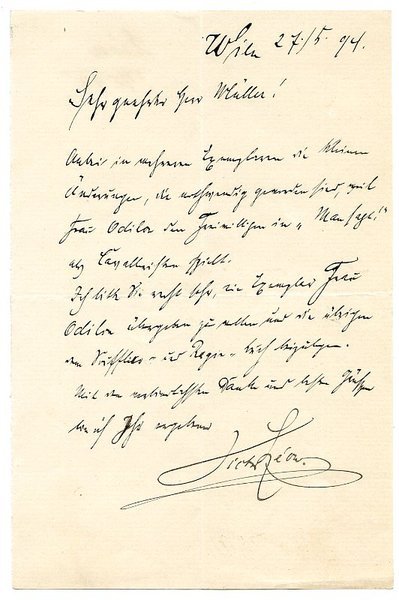 Wien 27./5. 94.
Sehr geehrter Herr Müller!
Anbei in mehreren Exemplaren die kleinen
Änderungen, die nothwendig geworden sind, weil
Frau Odilon den Freiwilligen in „Man sagt!"
als Cavalleristen spielt.
Ich bitte Sie recht sehr, ein Exemplar Frau
Odilon übergeben zu wollen und die übrigen
dem Soufflir- und Regie-buch beizulegen.
Mit dem verbindlichsten Danke und besten Grüßen
bin ich Ihr ergebener
Victor Léon.